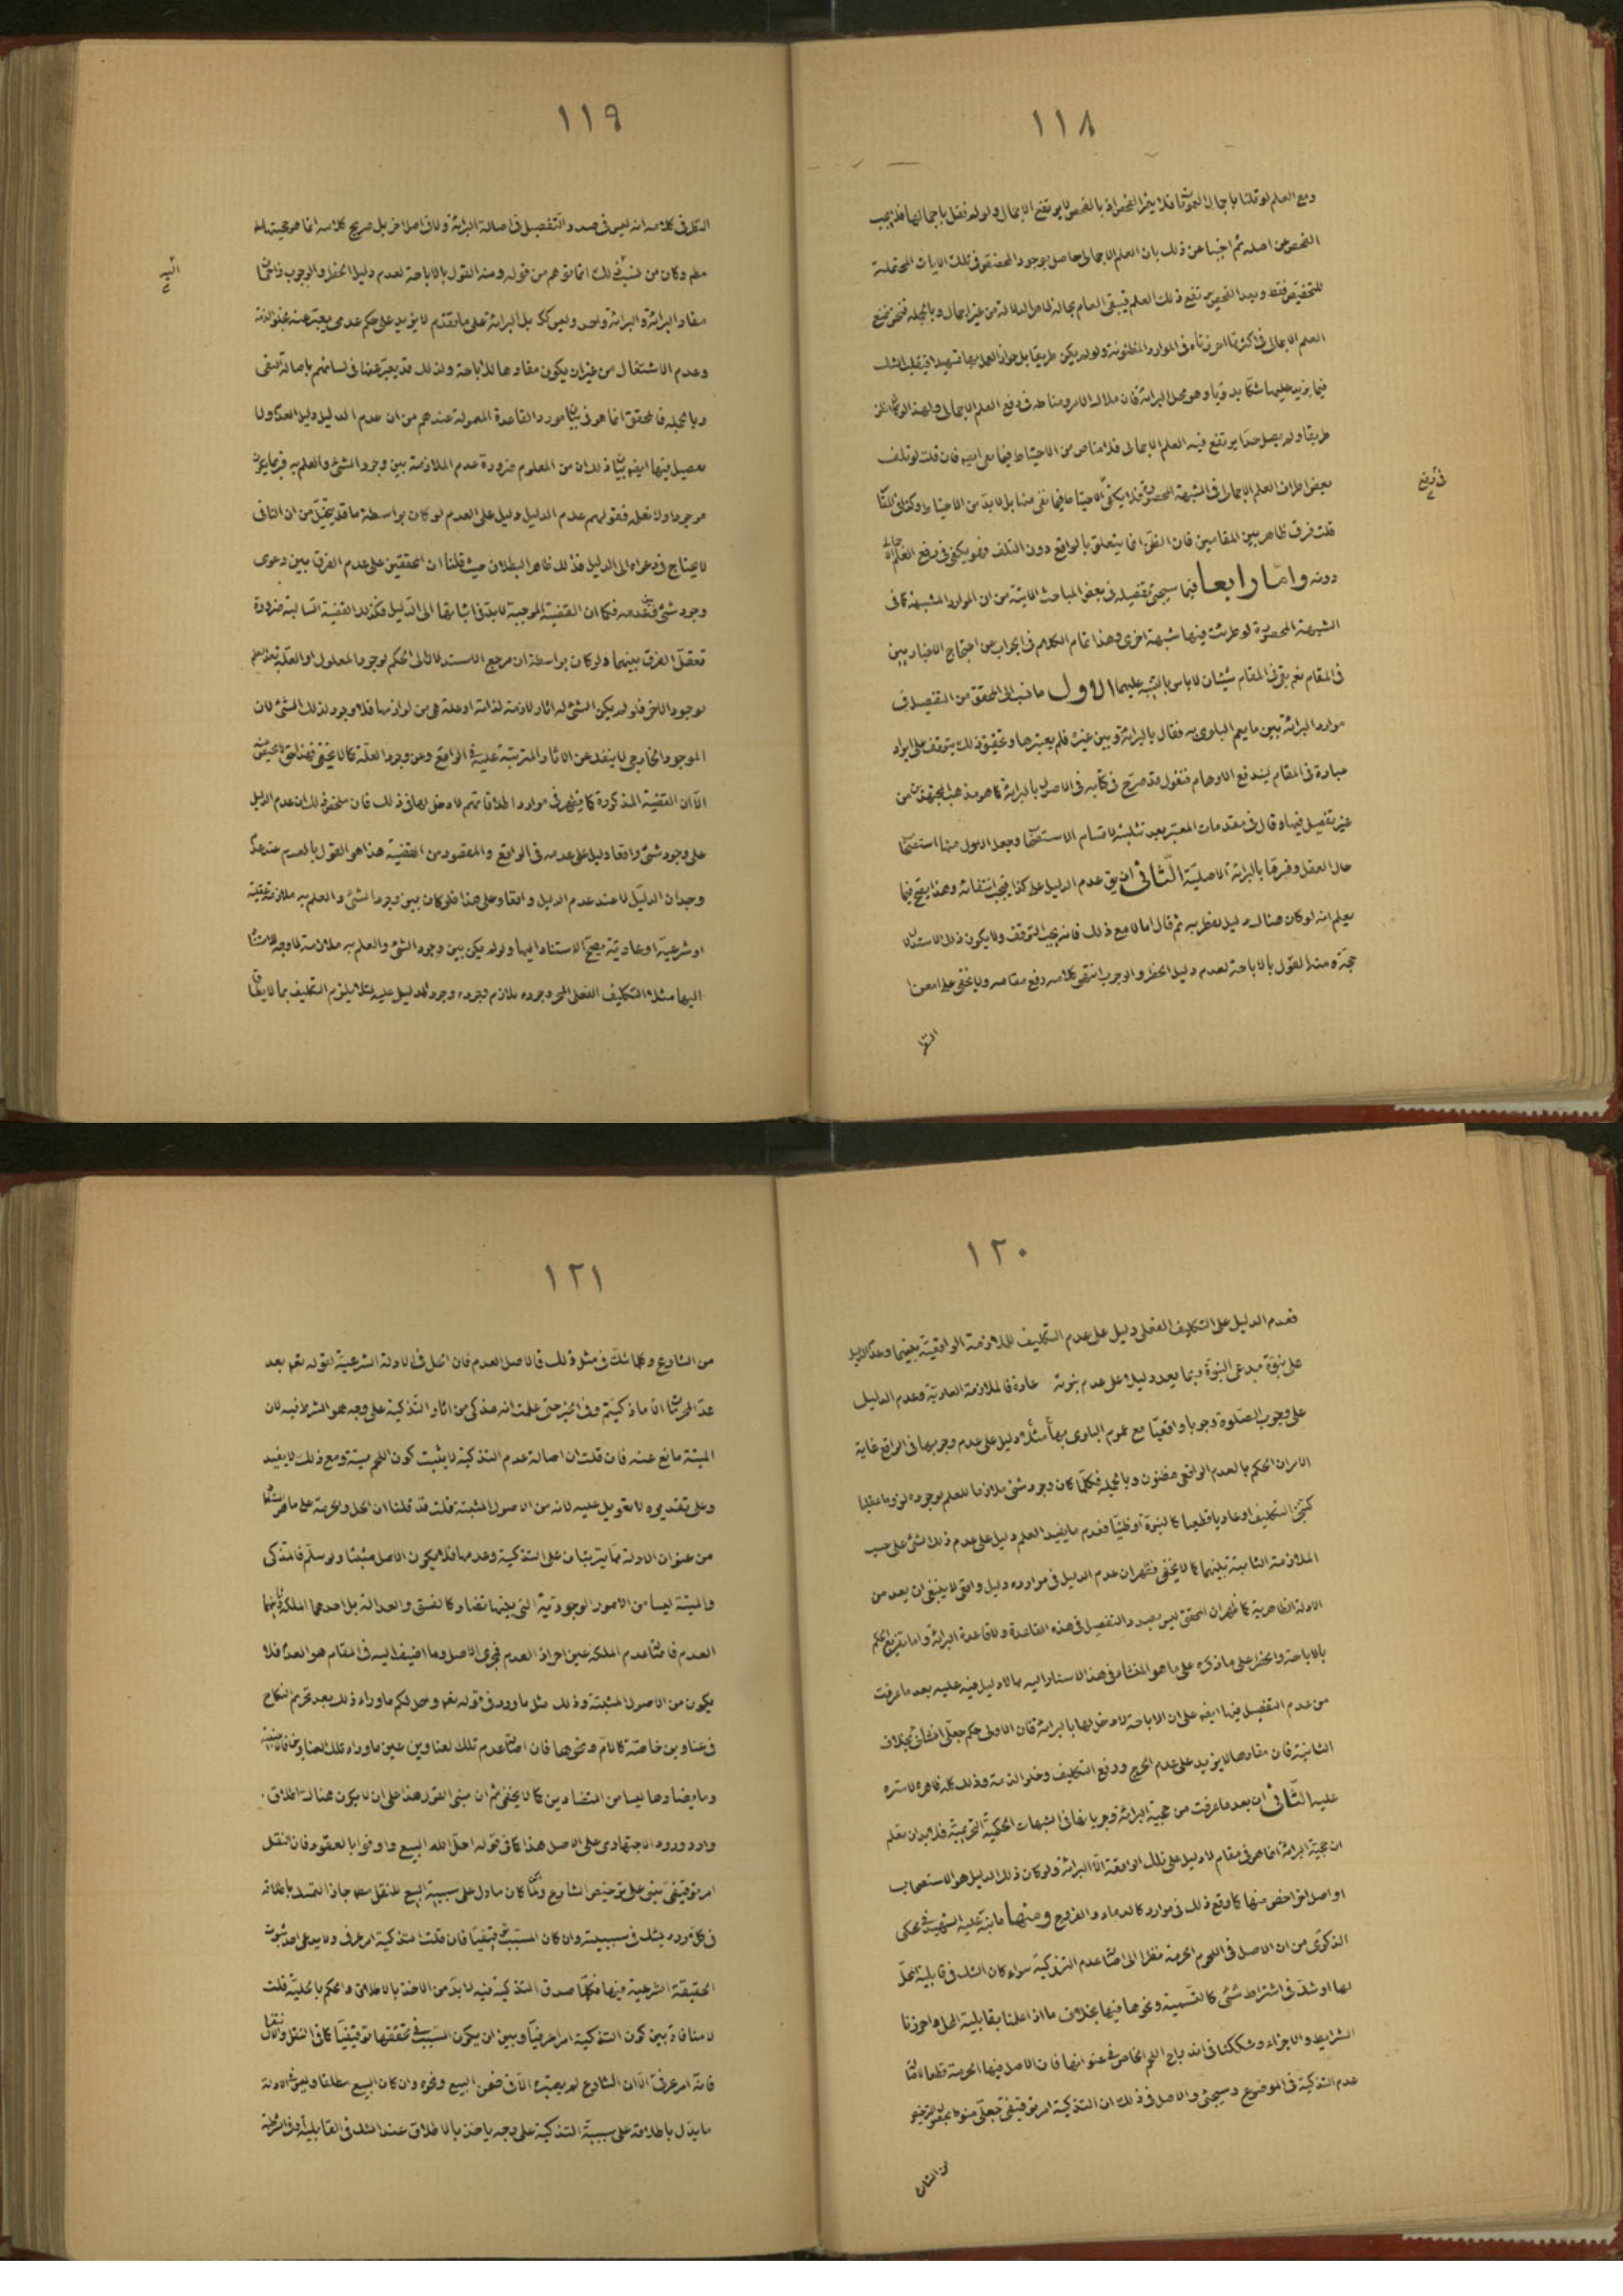 ١١٨
ومع العلم لو قلنا باجمال فلا يثمر الفحص اذ بالفحص لا يرتفع الاجمال ولو لم نقل باجمالها فلا يجب
الفحص من اصله ثم اجبنا عن ذلك بان العلم الاجمالى حاصل بوجود المخصص فى تلك الايات المحتملة
للتخصيص فقط وبعد الفحص يرتفع ذلك العلم فيبقى العام بحاله ظاهر الدلالة من غير اجمال وبالجملة فنحن نمنع
العلم الاجمالى فى اكثر مما احرزناه فى الموارد المظنونة ولو لم يكن طريقا بل جواز العمل بها تمهيدا فينقلب الشك
فيما يزيد عليها شكا بدويا وهو محل البرائة فان ملاك الامر ومناطه فى رفع العلم الاجمالى ولهذا لو كان الظن
طريقا ولم يصل حدا يرتفع فيه العلم الاجمالى فلا مناص من الاحتياط فيما بقى ايضا فان قلت لو تلف
بعض اطراف العلم الاجمالى فى الشبهة المحصورة فلا يكفى الاحتياط فيما بقى منها بل لابد من الاحتياط وكذلك المقام
قلت فرق ظاهر بين المقامين فان الظن انما يتعلق بالواقع دون التلف فهو يكفى فى رفع العلم
دونه واما رابعا فيما سيجئ تفصيله فى بعض المباحث الاتية من ان الموارد المشتبهة كما فى
الشبهة المحصورة لو طرئت فيها شبهة اخرى وهذا تمام الكلام فى الجواب عن احتجاج الاخباريين
فى المقام نعم بقى فى المقام شيئان لا باس بالتنبيه عليهما الاول ما نسب الى المحقق من التفصيل فى
موارد البرائة بين ما يعم البلوى به فقال بالبرائة وبين غيره فلم يعتبرها وتحقيق ذلك يتوقف على ايراد
عبارة فى المقام ليندفع الاوهام فنقول قد صرح فى كتابه فى الاصول بالبرائة كما هو مذهب المجتهدين من
غير تفصيل فيها وقال فى مقدمات المعتبر بعد تثليثه لاقسام الاستصحاب وجعل الاول منها استصحاب
حال العقل وفسرها بالبرائة الاصلية الثانى ان يق عدم الدليل على كذا فيجب انتفائه وهذا يصح فيما
يعلم انه لو كان هناك دليل لظفر به ثم قال اما لا مع ذلك فانه يجب التوقف ولا يكون ذلك الاستدلال
حجة ومنه القول بالاباحة لعدم دليل الحظر والوجوب انتهى كلامه رفع مقامه ولا يخفى على من امعن
١١٩
النظر فى كلامه انه ليس فى صدد التفصيل فى اصالة البرائة ولا فى اصل اخر بل صريح كلامه انما هو حجيتها
وكان من نسب ذلك انما توهم من قوله ومنه القول بالاباحة لعدم دليل الحظر والوجوب
مفاد البرائة والبرائة واحد وليس كك بل البرائة على ما تقدم لا يزيد على حكم عدمى يعبر عنه بخلو الذمة
وعدم الاشتغال من غير ان يكون مفادها للاباحة ولذلك قد يعبر عنها فى لسانهم باصالة النفى
وبالجملة فالمحقق انما هو فى بيان مورد القاعدة المعمولة عندهم من ان عدم الدليل دليل العدم ولا
تفصيل فيها ايضا بيان ذلك ان من المعلوم ضرورة عدم الملازمة بين وجود الشئ والعلم به فربما يكون
موجودا ولا نعلم فقولهم عدم الدليل دليل على العدم لو كان بواسطة ما قد يتخيل من ان النافى
لا يحتاج فى دعواه الى الدليل فذلك ظاهر البطلان حيث قلنا ان المحققين على عدم الفرق بين دعوى
وجود شئ وعدمه فكما ان القضية الموجبة لابد فى اثباتها الى الدليل فكذلك القضية السالبة ضرورة
تعقل الفرق بينهما ولو كان بواسطة ان مرجع الاستدلال الى الحكم بوجود المعلول او العلة بعد العلم
بوجود الاخر فلو لم يكن الشئ له اثار لازمة لذاته او علة هى من لوازمها فلا وجود لذلك الشئ لان
الموجود الخارجى لا ينفك عن الاثار المترتبة عليه فى الواقع ومن وجود العلة كما لا يخفى فهذا حق
الا ان القضية المذكورة كما يظهر فى موارد اطلاقاتهم لا دخل لها فى ذلك فان ملخص ذلك ان عدم الدليل
على وجود شئ واقعا دليل على عدمه فى الواقع والمقصود من القضية هذا هو القول بالعدم عند عدم
وجدان الدليل لا عند عدم الدليل واقعا وعلى هذا فلو كان بين وجود الشئ والعلم به ملازمة عقلية
او شرعية او عادية يصح الاستناد اليها ولو لم يكن بين وجود الشئ والعلم به ملازمة لا وجه للاستناد
اليها مثلا التكليف الفعلى وجوده ملازم وجوده وجود الدليل عليه لئلا يلزم التكليف بما لا يطاق
١٢٠
فعدم الدليل على التكليف الفعلى دليل على عدم التكليف للملازمة الواقعية بينهما وعدم الدليل
على نبوة مدعى النبوة وبما يعد دليلا على عدم نبوته عادة فالملازمة العادية وعدم الدليل
على وجوب الصلوة وجوبا واقعيا مع عموم البلوى بها مثلا دليل على عدم وجوبها فى الواقع غاية
الامر ان الحكم بالعدم الواقعى مظنون وبالجملة فكلما كان وجود شئ ملازما للعلم بوجوده لزوما عقليا
كتنجز التكليف او عاديا قطعيا كالنبوة او ظنيا فعدم ما يفيد العلم دليل على عدم ذلك الشئ على حسب
الملازمة الثابتة بينهما كما لا يخفى فظهر ان عدم الدليل فى موارده دليل واقعى لا ينبغى ان يعد من
الادلة الظاهرية كما ظهر ان المحقق ليس بصدد التفصيل فى هذه القاعدة ولا قاعدة البرائة واما تفريع الحكم
بالاباحة والحظر على ما ذكره على ما هو المنشاء فى هذا الاسناد اليه مما لا دليل فيه عليه بعد ما عرفت
من عدم التفصيل فيها ايضا على ان الاباحة لا دخل لها بالبرائة فان الاولى حكم جعلى انشائى بخلاف
الثانية فان مفادها لا يزيد على عدم الحرج ورفع التكليف وخلو الذمة وذلك كله ظاهر لا ستره
عليه الثانى ان بعد ما عرفت من حجية البرائة وجريانها فى الشبهات الحكمية التحريمية فلا بد ان تعلم
ان حجية البرائة انما هو فى مقام لا دليل على تلك الواقعة الا البرائة ولو كان ذلك الدليل هو الاستصحاب
او اصل اخر اخص منها كما وقع ذلك فى موارد كالدماء والفروج ومنها ما نبه عليه الشهيد فى محكى
الذكرى من ان الاصل فى اللحوم الحرمة نظرا الى اصالة عدم التذكية سواء كان الشك فى قابلية المحل
لها او شك فى اشتراط شئ كالتسمية ونحوها فيها بخلاف ما اذا علمنا بقابلية المحل واحرزنا
الشرايط والاجزاء وشككنا فى اندراج اللحم الخاص فى عنوانها فان الاصل فيها الحرمة قطعا لاصالة
عدم التذكية فى الموضوع وسيجئ والاصل فى ذلك ان التذكية امر توقيفى جعلى
من الشارع
١٢١
من الشارع وكلما شك فى مثل ذلك فالاصل العدم فان قيل فى الادلة الشرعية لقوله تعم بعد
عد المحرمات الا ما ذكيتم وفى الخبر حتى علمت انه مذكى من اثار التذكية على وجه هو الشرط فيه لان
الميتة مانع عنه فان قلت ان اصالة عدم التذكية لا يثبت كون اللحم ميتة ومع ذلك لا يفيد
وعلى تقديره لا تعويل عليه لانه من الاصول المثبتة قلت قد قلنا ان الحل والحرمة على ما
من عنوان الادلة مما يترتبان على التذكية وعدمها فلا يكون الاصل مثبتا ولو سلم فالمذكى
والميتة ليسا من الامور الوجودية التى بينها تضاد كالفسق والعدالة بل احدهما الملكة
العدم فاصالة عدم الملكة عين احراز العدم فمجرى الاصل وما اضيف اليه فى المقام هو العدم فلا
يكون من الاصول المثبتة وذلك مثل ما ورد فى قوله تعم واحل لكم ما وراء ذلك بعد تحريم النكاح
فى عناوين خاصة كالام ونحوها فان اصالة عدم تلك العناوين عين ما وراء تلك العناوين
وما يضادها ليسا من المتضادين كما لا يخفى ثم ان مبنى القول هذا على ان لا يكون هنا اطلاق
وارد ورود الاجتهادى على الاصل هذا كما فى قوله احل الله البيع واوفوا بالعقود فان النقل
امر توقيفى مبنى على ترخيص الشارع ولما كان ما دل على سببية البيع للنقل جاز التمسك باطلاقه
فى كل مورد يشك فى سببيته وان كان السبب توقيفيا فان قلت التذكية امر عرفى ولا يدعى احد ثبوت
الحقيقة الشرعية فيها فكلما صدق التذكية فيه لابد من الاخذ بالاطلاق والحكم بالحلية قلت
لا منافاة بين كون التذكية امرا عرفيا وبين ان يكون السبب فى تحققها توقيفيا كما فى النقل
فانه امر عرفى الا ان الشارع لم يعتبره الا فى ضمن البيع ونحوه وان كان البيع مطلقا وليس فى الادلة
ما يدل باطلاقه على سببية التذكية على وجه ياخذ بالاطلاق عند الشك فى القابلية